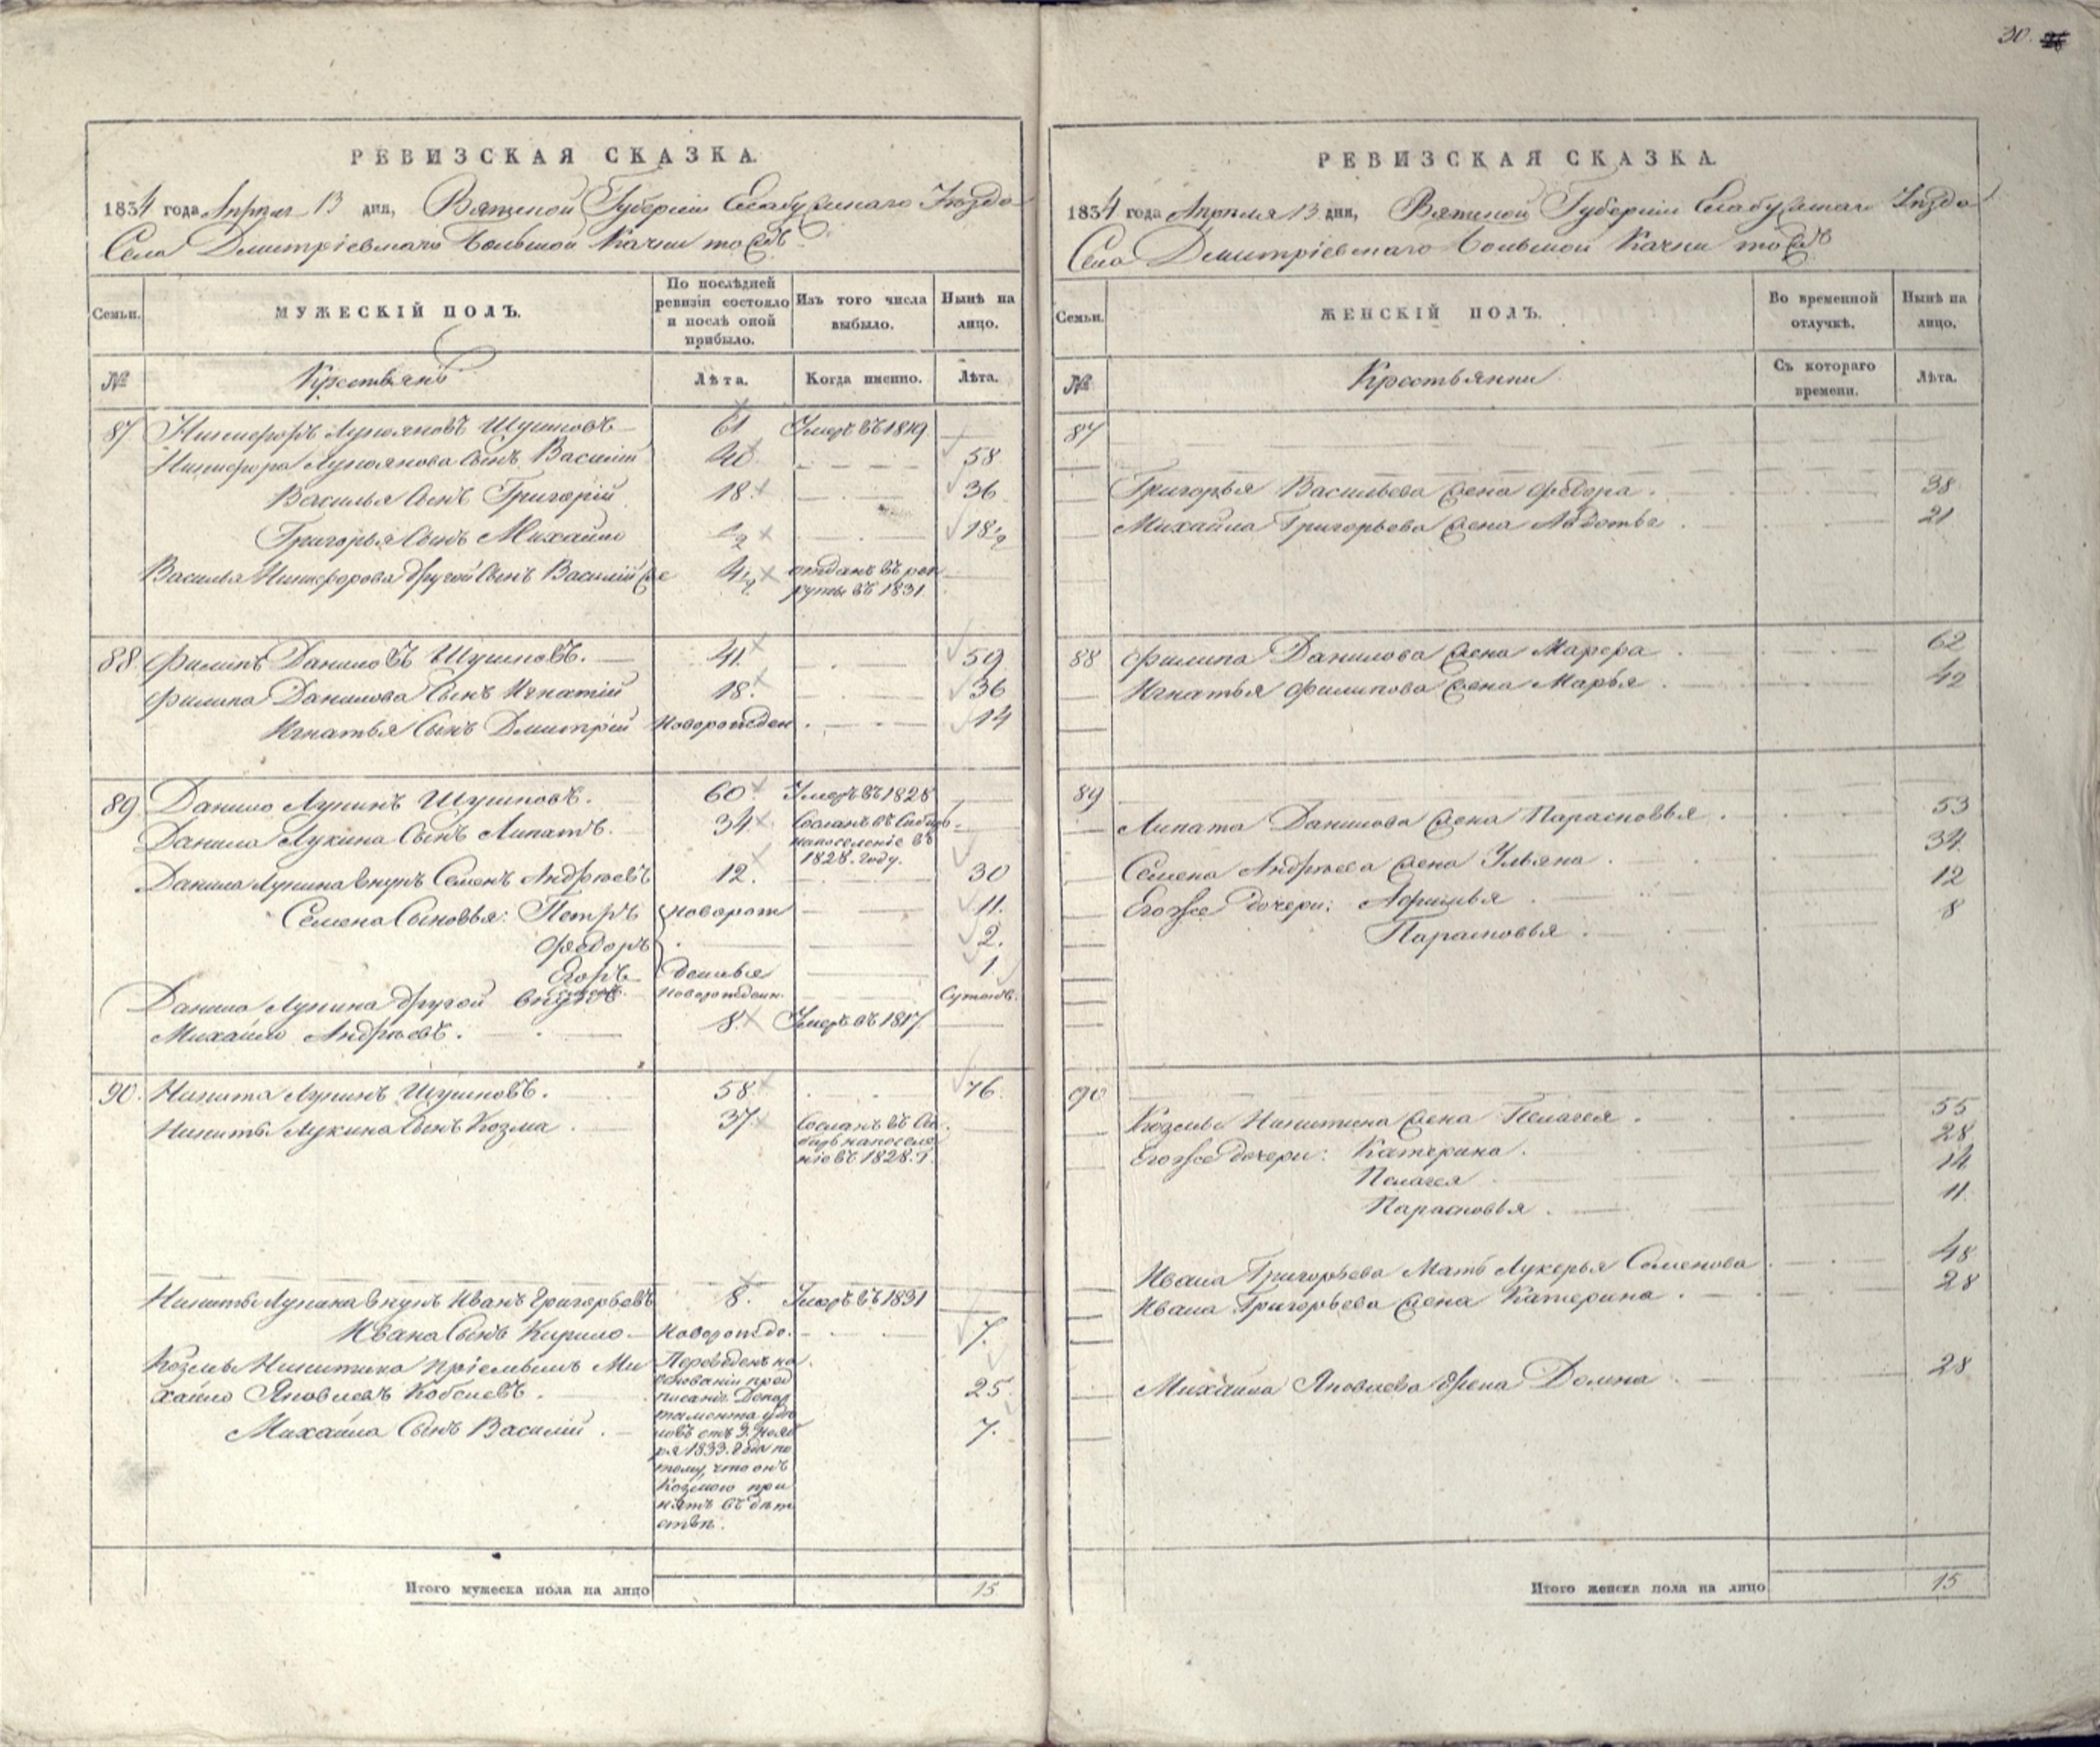 30. 26
РЕВИЗСКАЯ СКАЗКА.
1834 года Апреля 13 дня, Вятской Губерніи Елабужскаго Уѣзда
Села Дмитріевскаго Большой Качки тожъ
Семьи.
МУЖЕСКІЙ ПОЛЪ.
По послѣдней ревизіи состояло и послѣ оной прибыло.
Изъ того числа выбыло.
Нынѣ на лицо.
№
Крестьянъ
Лѣта.
Когда именно.
Лѣта.
87 Никифоръ Лукояновъ Шушковъ 61 Умеръ въ 1819
Никифора Лукоянова сынъ Василій 40 58
Василья сынъ Григорій 18 36
Григорья сынъ Михайло 1/2 18 1/2
Василья Никифорова другой сынъ Василій же 4 1/2 отданъ въ рек
руты въ 1831
88 Филипъ Даниловъ Шушковъ. 41 59
Филипа Данилова сынъ Игнатій 18. 36
Игнатья сынъ Дмитрій Новорожден 14
89 Данило Лукинъ Шушковъ. 60 Умеръ въ 1828
Данила Лукина сынъ Липатъ. 34 Сосланъ въ Сибирь
напоселеніе въ
1828. году.
Данила Лукина внукъ Семенъ Андрѣевъ 12. 30
Семена сыновья: Петръ новорож 11.
Федоръ 2.
Егоръ денные 1
Новорожденн. Сутокъ.
Данила Лукина другой внукъ
Михайло Андрѣевъ. 8. Умеръ въ 1817
90. Никита Лукинъ Шушковъ. 58 76
Никиты Лукина сынъ Козма 37. Сосланъ въ Си
бирь напоселе
ніе въ 1828. г.
Никиты Лукина внукъ Иванъ Григорьевъ 8. Умеръ въ 1831
Ивана сынъ Кирило Новорожде. 7.
Козмы Никитина пріемышъ Ми
хайло Яковлевъ 25.
Михайла сынъ Василій. 7.
Переведенъ на
основаніи пред
писанія Депар
тамента удѣ
ловъ отъ 9. Нояб
ря 1833. года по
тому, что онъ
Козмою при
нятъ въ дѣт
ствѣ.
Итого мужеска пола на лицо 15
РЕВИЗСКАЯ СКАЗКА.
1834 года Апреля 13 дня, Вятской Губерніи Елабужскаго Уѣзда
Села Дмитріевскаго Большой Качки тожъ
Семьи.
ЖЕНСКІЙ ПОЛЪ.
Во временной отлучкѣ.
Нынѣ на лицо.
№
Крестьянки
Съ котораго времени.
Лѣта.
87
Григорья Васильева жена Федора. 38
Михайла Григорьева жена Авдотья. 21
88 Филипа Данилова жена Марфа 62
Игнатья Филипова жена Марья. 42
89
Липата Данилова жена Парасковья. 53
Семена Андрѣева жена Ульяна. 34.
Егожъ дочери: Афимья 12
Парасковья. 8
90
Козмы Никитина жена Пелагея. 55
Егоже дочери: Катерина. 28
Пелагея 14
Парасковья. 11
Ивана Григорьева мать Лукерья Семенова 48
Ивана Григорьева жена Катерина. 28
Михайла Яковлева жена Домна 28
Итого женска пола на лицо 15